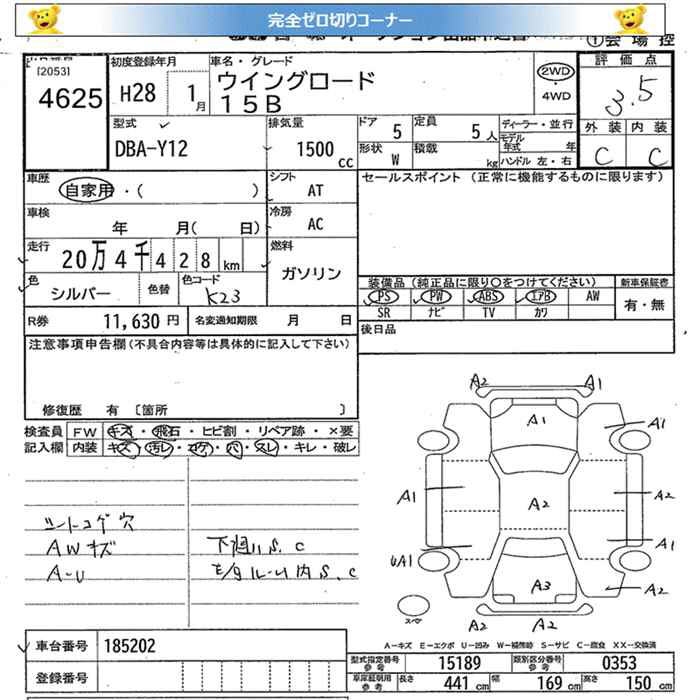 完全ゼロ切りコーナー
①会場控
[2053]
4625
初度登録年月
H28 1月
車名・グレード
ウイングロード
15B
2WD
・
4WD
評価点
3.5
外装 内装
C C
型式
DBA-Y12
排気量
1500 cc
ドア 5
定員 5人
形状 W
積載 kg
ディーラー・並行
モデル年式 年
ハンドル 左・右
車歴
自家用・( )
シフト
AT
セールスポイント (正常に機能するものに限ります)
車検
年 月( 日)
冷房
AC
走行
20万4千428km
燃料
ガソリン
色
シルバー
色替
色コード
K23
装備品(純正品に限り○をつけてください)
新車保証書
PS PW ABS エアB AW
有・無
SR ナビ TV カワ
R券 11,630円
名変通知期限 月 日
後日品
注意事項申告欄(不具合内容等は具体的に記入して下さい)
修復歴 有 〔箇所 〕
検査員 FW キズ・飛石・ヒビ割・リペア跡・×要
記入欄 内装 キズ・汚レ・コゲ・穴・スレ・キレ・破レ
シートコゲ穴
AWキズ
A-U
下廻りS.C
A2 A1
A1
A1
A1
A2
A2
UA1
A1
A3
A2
A2 A2
スペア
A-キズ E-エクボ U-凹み W-補修跡 S-サビ C-腐食 XX-交換済
車台番号 185202
登録番号
型式指定番号参考 15189
類別区分番号参考 0353
車庫証明用参考 長さ 441cm 幅 169cm 高さ 150cm